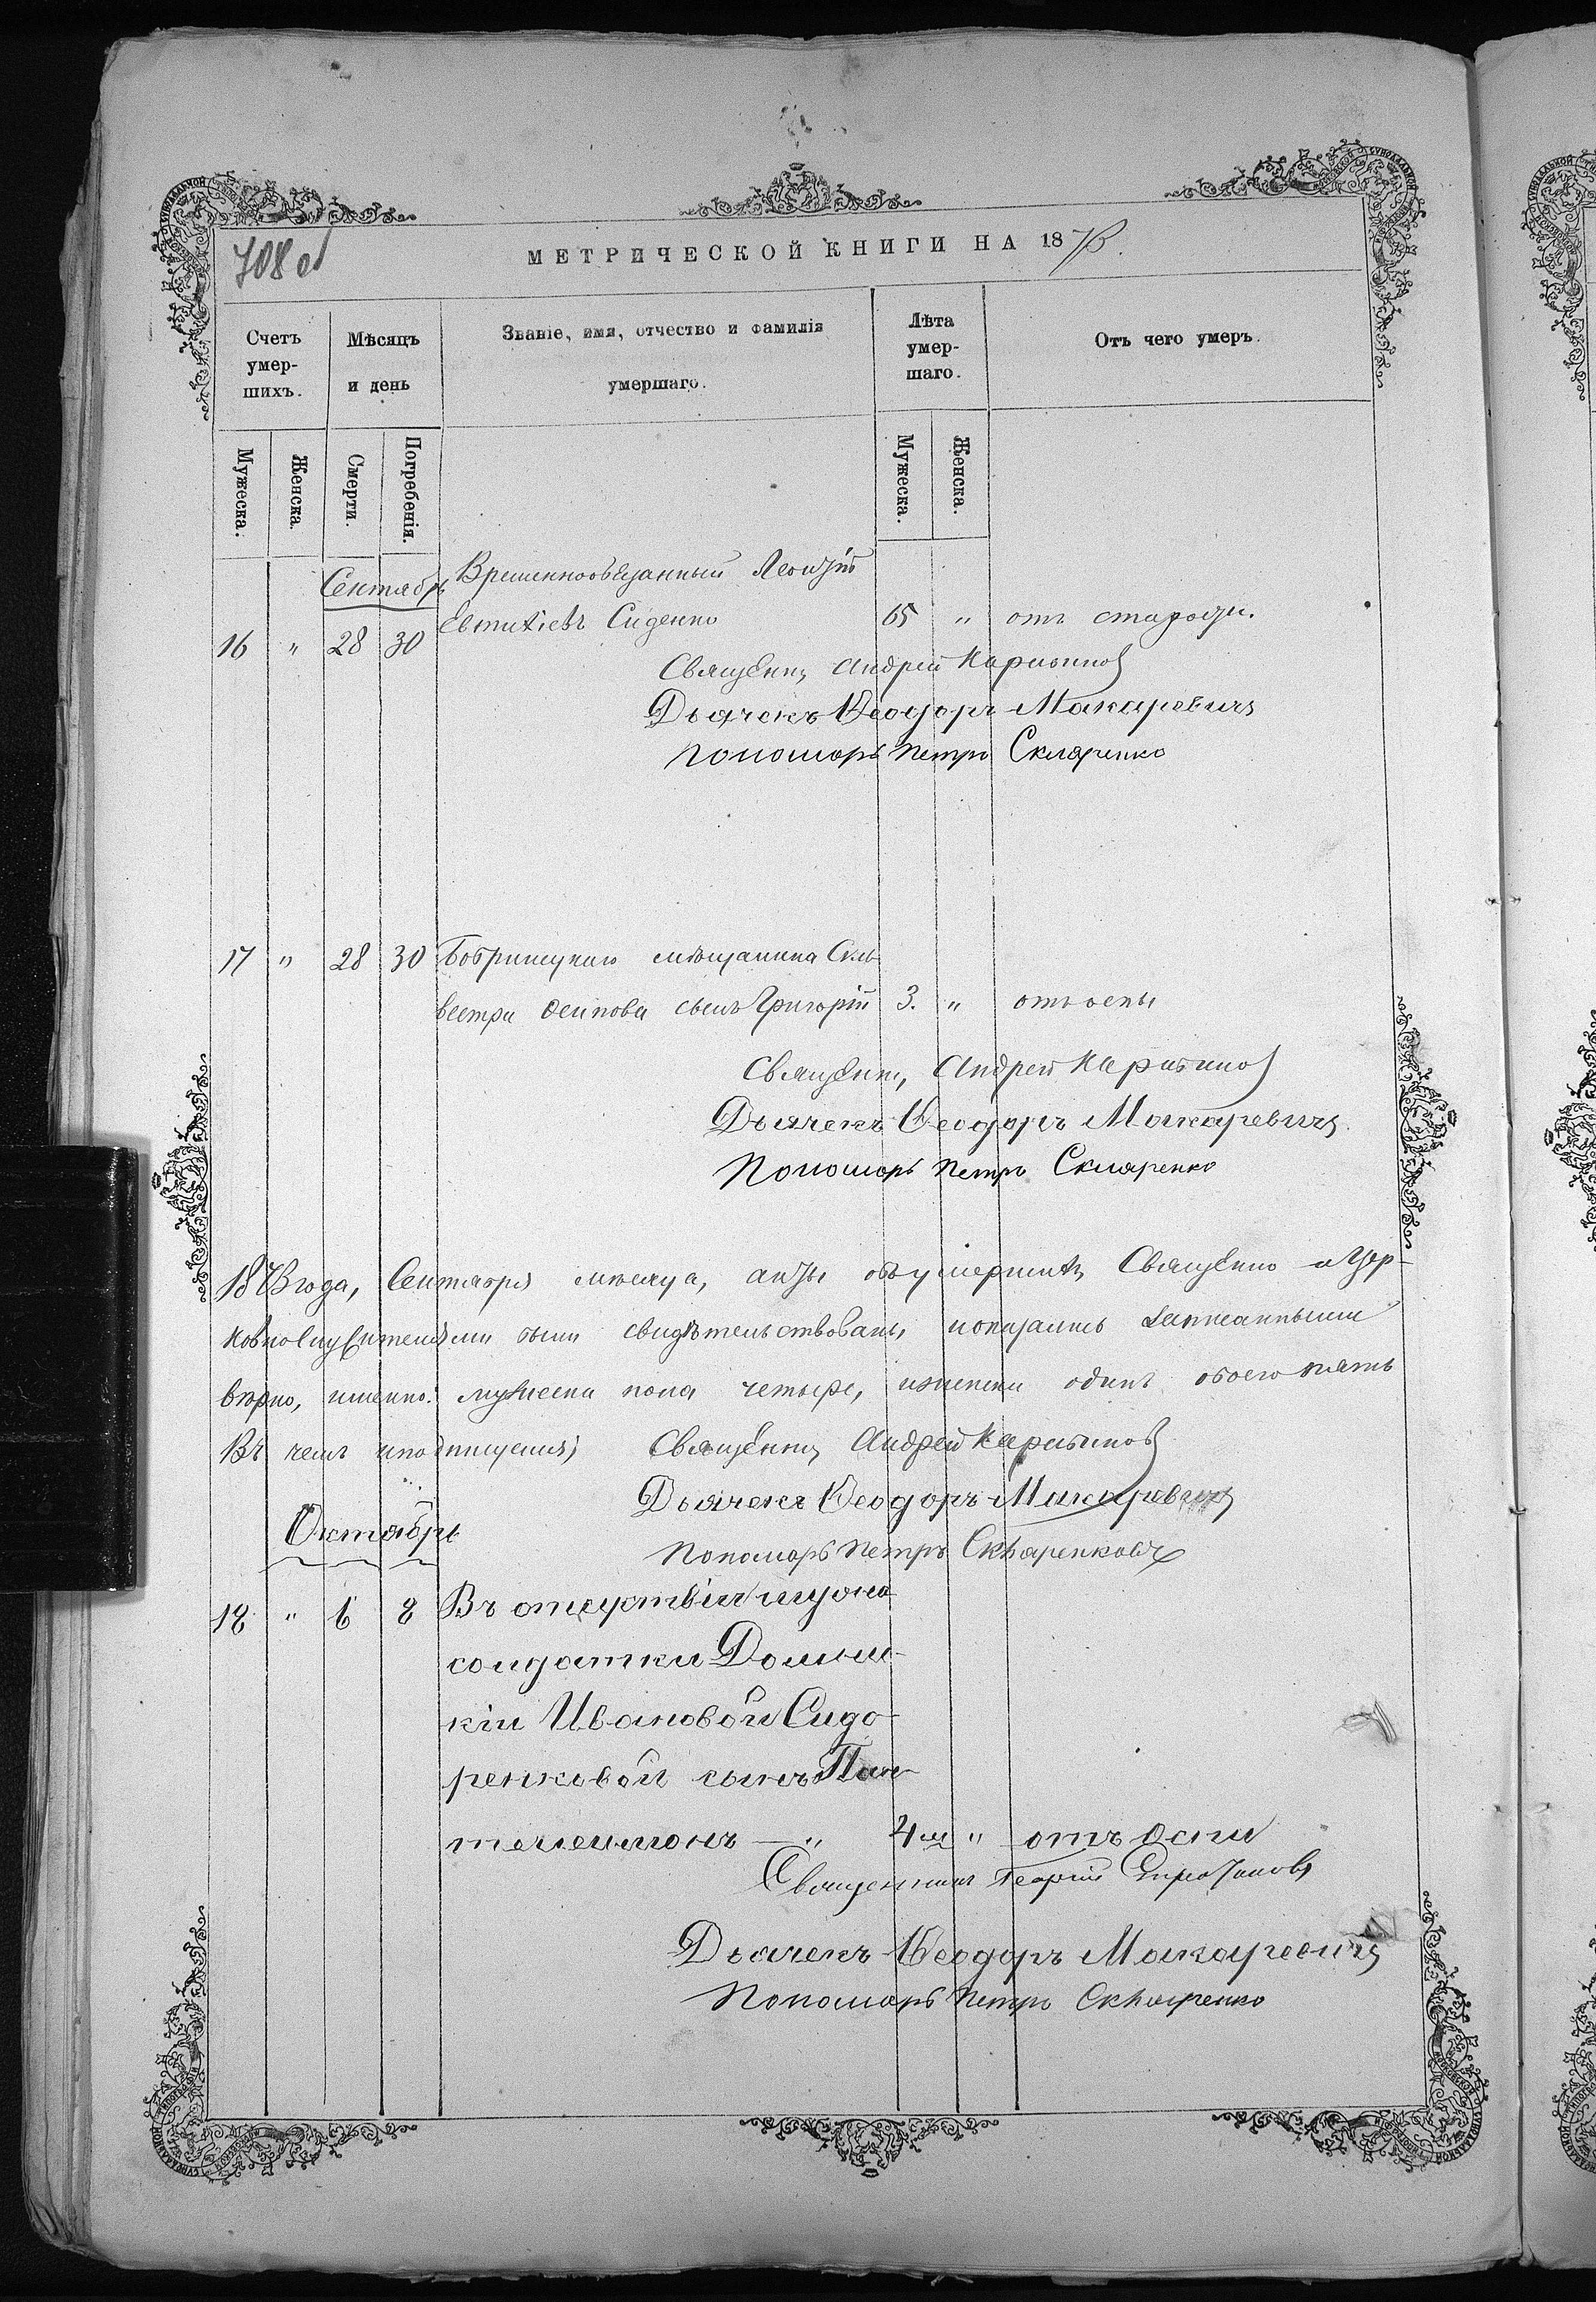 708 об
МЕТРИЧЕСКОЙ КНИГИ НА 1873.
Счетъ умер-шихъ.
Мѣсяцъ и день
Званіе, имя, отчество и фамилія умершаго.
Лѣта умер-шаго.
Отъ чего умеръ.
Мужеска.
Женска.
Смерти.
Погребенія.
Мужеска.
Женска.
Сентябрь
Временнообязанный
16 " 28 30 Евтихіевъ Сиденко 65 " отъ старости.
Священникъ Андрей
Дьячекъ Ѳеодоръ Макаревичъ
Пономарь Петръ Скляренко
17 " 28 30 Бобринецкаго мѣщанина Сил-
вестра Осипова сынъ Григорій 3. " отъ оспы
Священникъ Андрей
Дьячекъ Ѳеодоръ Макаревичъ
Пономарь Петръ Скляренко
1873 года, Сентября мѣсяца, объ умершихъ Священно и Цер-
ковнослужителями были свидѣтельствованы и оказались записанными
вѣрно, именно: мужеска пола четыре, женска одинъ обоего пять
Въ чемъ и подписуемся, Священникъ Андрей
Дьячекъ Ѳеодоръ Макаревичъ
Октябрь
Пономарь Петръ Скляренковъ
18 " 6 8 Въ отсуствіи мужа
солдатки Домни-
кіи Ивановой Сидо-
ренковой сынъ Пан-
телеимонъ — " 4 м " отъ оспы
Священникъ Георгій
Дьячекъ Ѳеодоръ Макаревичъ
Пономарь Петръ Скляренко